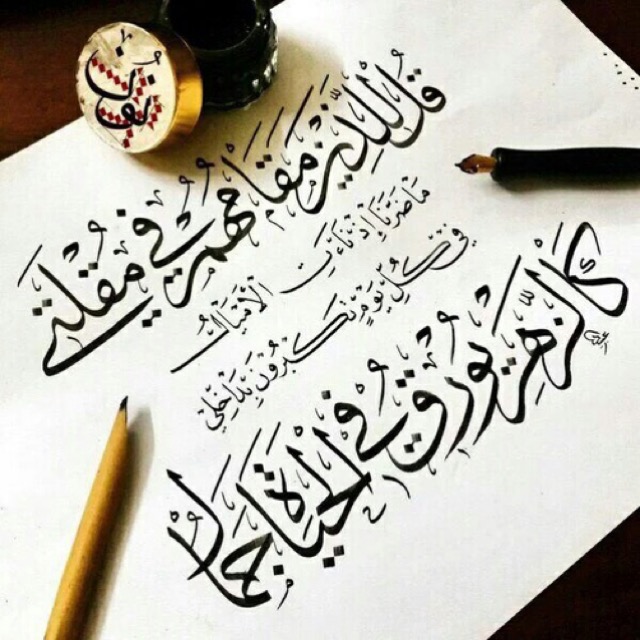 قل للذين مقامهم في مقلتي
ما ضرنا إذ ناءت الأميال
في كل يوم تكبرون بداخلي
كالزهر يورق في الحياة جمال